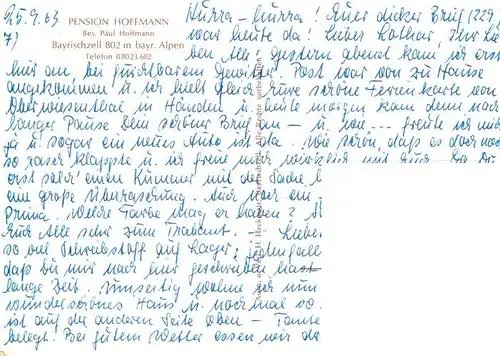 25.9.63
PENSION HOFFMANN
Bes. Paul Hoffmann
Bayrischzell 802 m bayr. Alpen
Telefon 08023.682
7)
Hurra - hurra! Euer dicker Brief (22.9.
war heute da! Lieber Lothar, Ihr Lie-
ben Alle! Gestern abend kam ich erst
hier an, bei furchtbarem Gewitter. Post war von zu Hause
angekommen u. ich hielt gleich Eure schöne Ferienkarte von
Oberwiesenthal in Händen u. heute morgen kam denn nach
langer Pause Dein schöner Brief an - u. wie freute ich mich
ja u. sogar ein neues Auto ist da. Wie schön, daß es doch noch
so rasch klappte u. ich freue mich wirklich mit Euch.
erst solch' einen Kummer mit der Sache
eine große Überraschung. Auch noch ein
Prima. Welche Farbe mag er haben?
Euch Alle sehr zum Trabant. - Lieber
so viel Schreibstoff auf Lager, jedenfalls
daß Du mir nach hier geschrieben hast
lange Zeit. Umseitig wohne ich nun
wunderschönes Haus u. nochmal so
ist auf der anderen Seite oben - Tante
belegt. Bei gutem Wetter essen wir